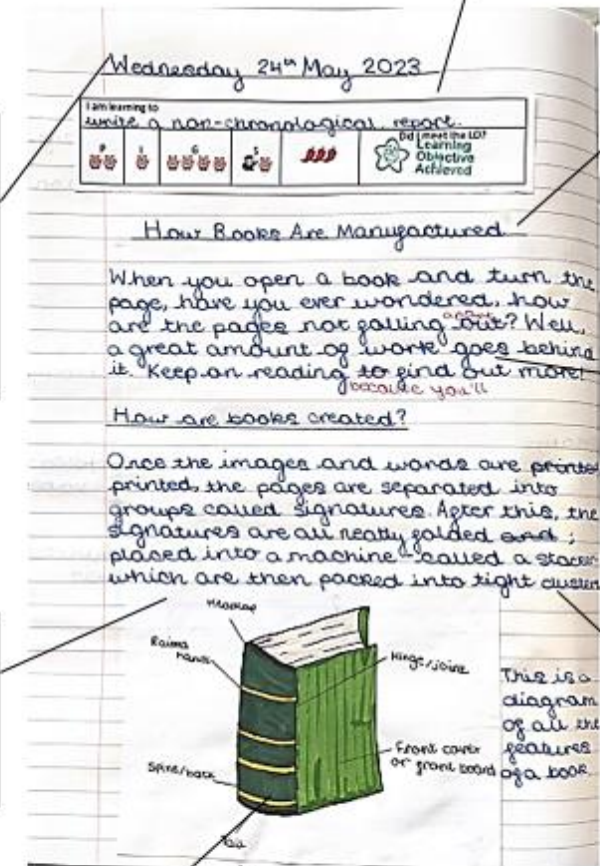 Wednesday 24th May 2023
I am learning to
write a non-chronological report.
P I G S
Did I meet the LO?
Learning
Objective
Achieved
How Books Are Manufactured
When you open a book and turn the
page, have you ever wondered, how
are the pages not falling out? Well,
a great amount of work goes behind
it. Keep on reading to find out more!
because you'll
How are books created?
Once the images and words are printe
printed, the pages are separated into
groups called signatures. After this, the
signatures are all neatly folded and ;
placed into a machine called a
which are then packed into tight
Headcap
Raised
bands
Hinge/joint
This is a
diagram
of all the
features
of a book
Front cover
or front board
Spine/back
Tail